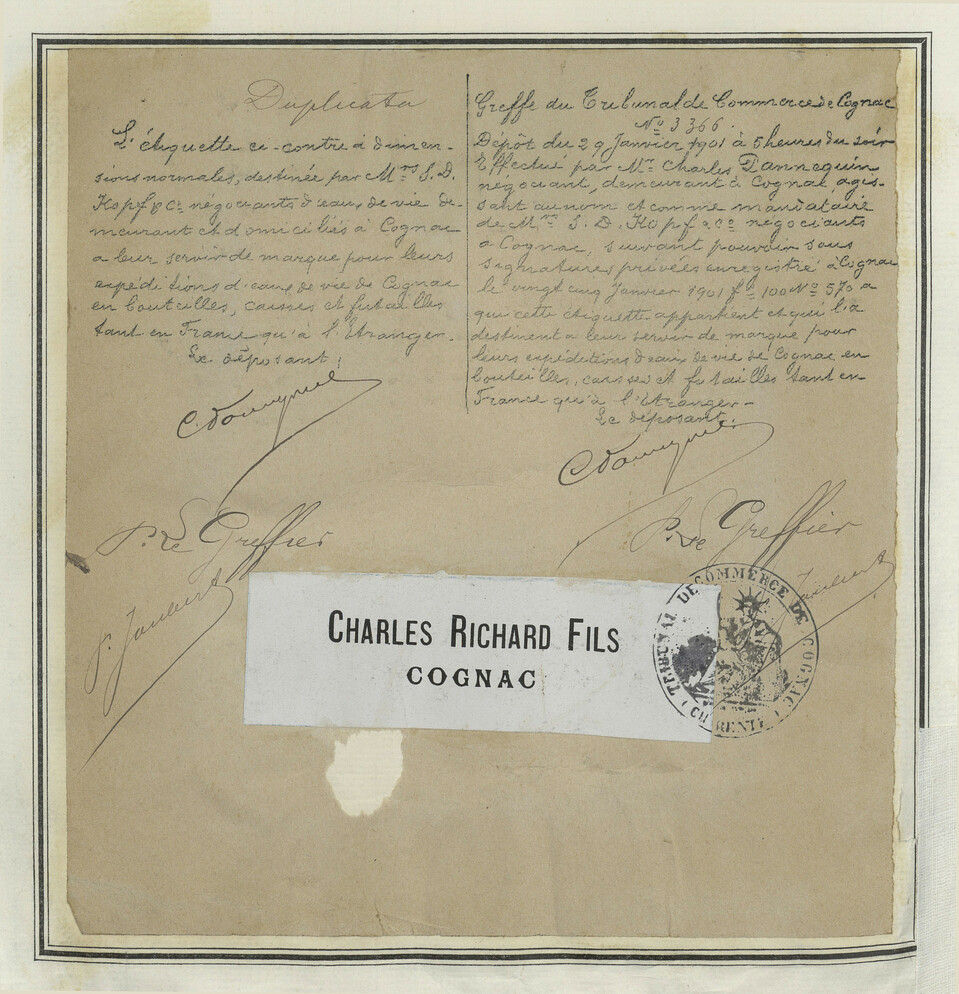 Duplicata
L'étiquette ci-contre à dimen-
sions normales, destinée par Mrs S. D.
Kopf & Co négociants d'eaux de vie de-
meurant et domiciliés à Cognac
a leur servir de marque pour leurs
expéditions d'eaux de vie de Cognac
en bouteilles, caisses et futailles
tant en France qu'à l'Etranger.
Le déposant,
P. Le Greffier
Greffe du Tribunal de Commerce de Cognac
No 3366.
Dépôt du 29 Janvier 1901 à 5 heures du soir
Effectué par Mr Charles
négociant, demeurant à Cognac, agis-
sant au nom et comme mandataire
de Mrs S. D. Kopf & Co négociants
a Cognac, suivant pouvoir sous
signatures privées enregistré à Cognac
le vingt cinq Janvier 1901 fo 100 No 570 a
qui cette étiquette appartient et qui l'a
destinent a leur servir de marque pour
leurs expéditions d'eaux de vie de Cognac en
bouteilles, caisses et futailles tant en
France qu'à l'Etranger.
Le déposant,
P. Le Greffier
CHARLES RICHARD FILS
COGNAC
TRIBUNAL DE COMMERCE DE COGNAC
(CHARENTE)